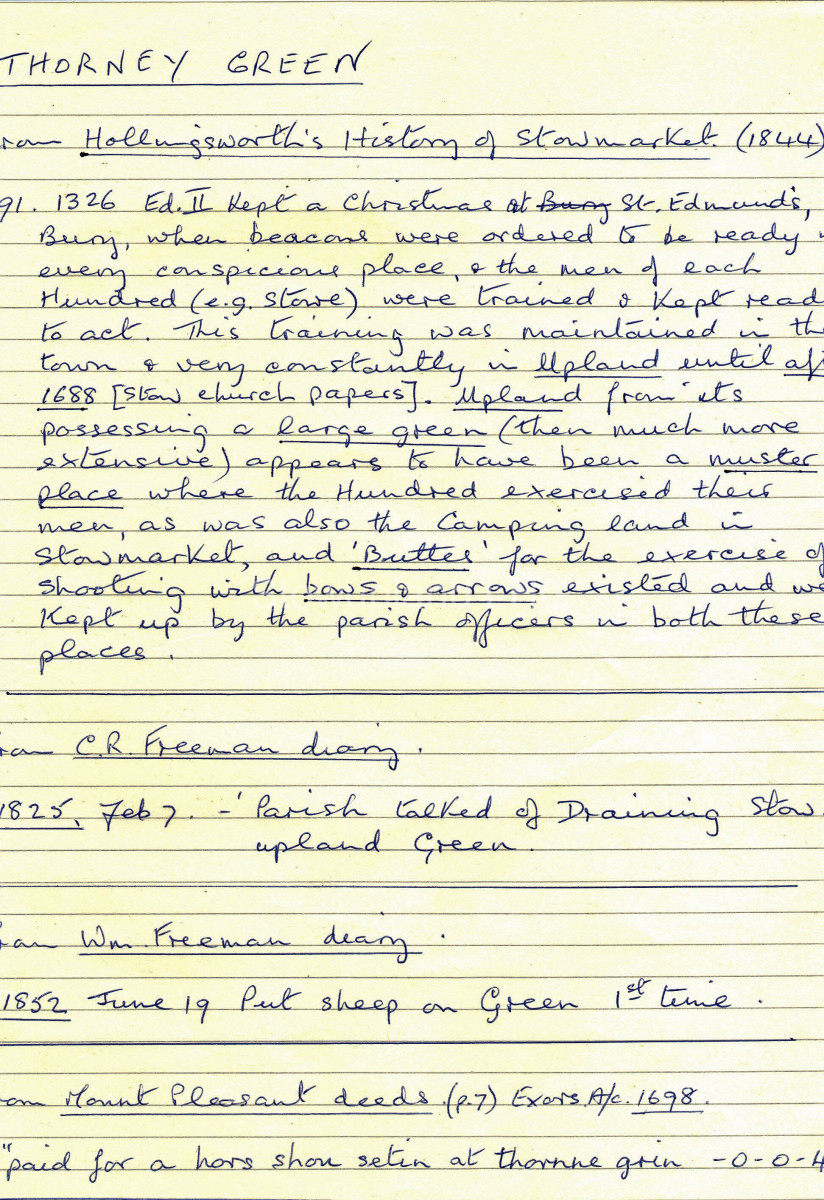 THORNEY GREEN
rom Hollingsworth's History of Stowmarket. (1844)
91. 1326 Ed. II Kept a Christmas at Bury St. Edmund's,
Bury, when beacons were ordered to be ready
every conspicious place, & the men of each
Hundred (e.g. Stowe) were trained & kept read
to act. This training was maintained in th
town & very constantly in Upland until af
1688 [Stow church papers]. Upland from its
possessing a large green (then much more
extensive) appears to have been a muster
place where the Hundred exercised their
men, as was also the Camping land in
Stowmarket, and 'Buttes' for the exercise of
shooting with bows & arrows existed and we
Kept up by the parish officers in both these
places.
rom C.R. Freeman diary.
1825, Feb 7. - 'Parish talked of Draining Stow
upland Green.
rom Wm. Freeman diary.
1852 June 19 Put sheep on Green 1st time.
om Mount Pleasant deeds (p.7) Exors. A/c. 1698.
"paid for a hors shou setin at thornne grin -0-0-4